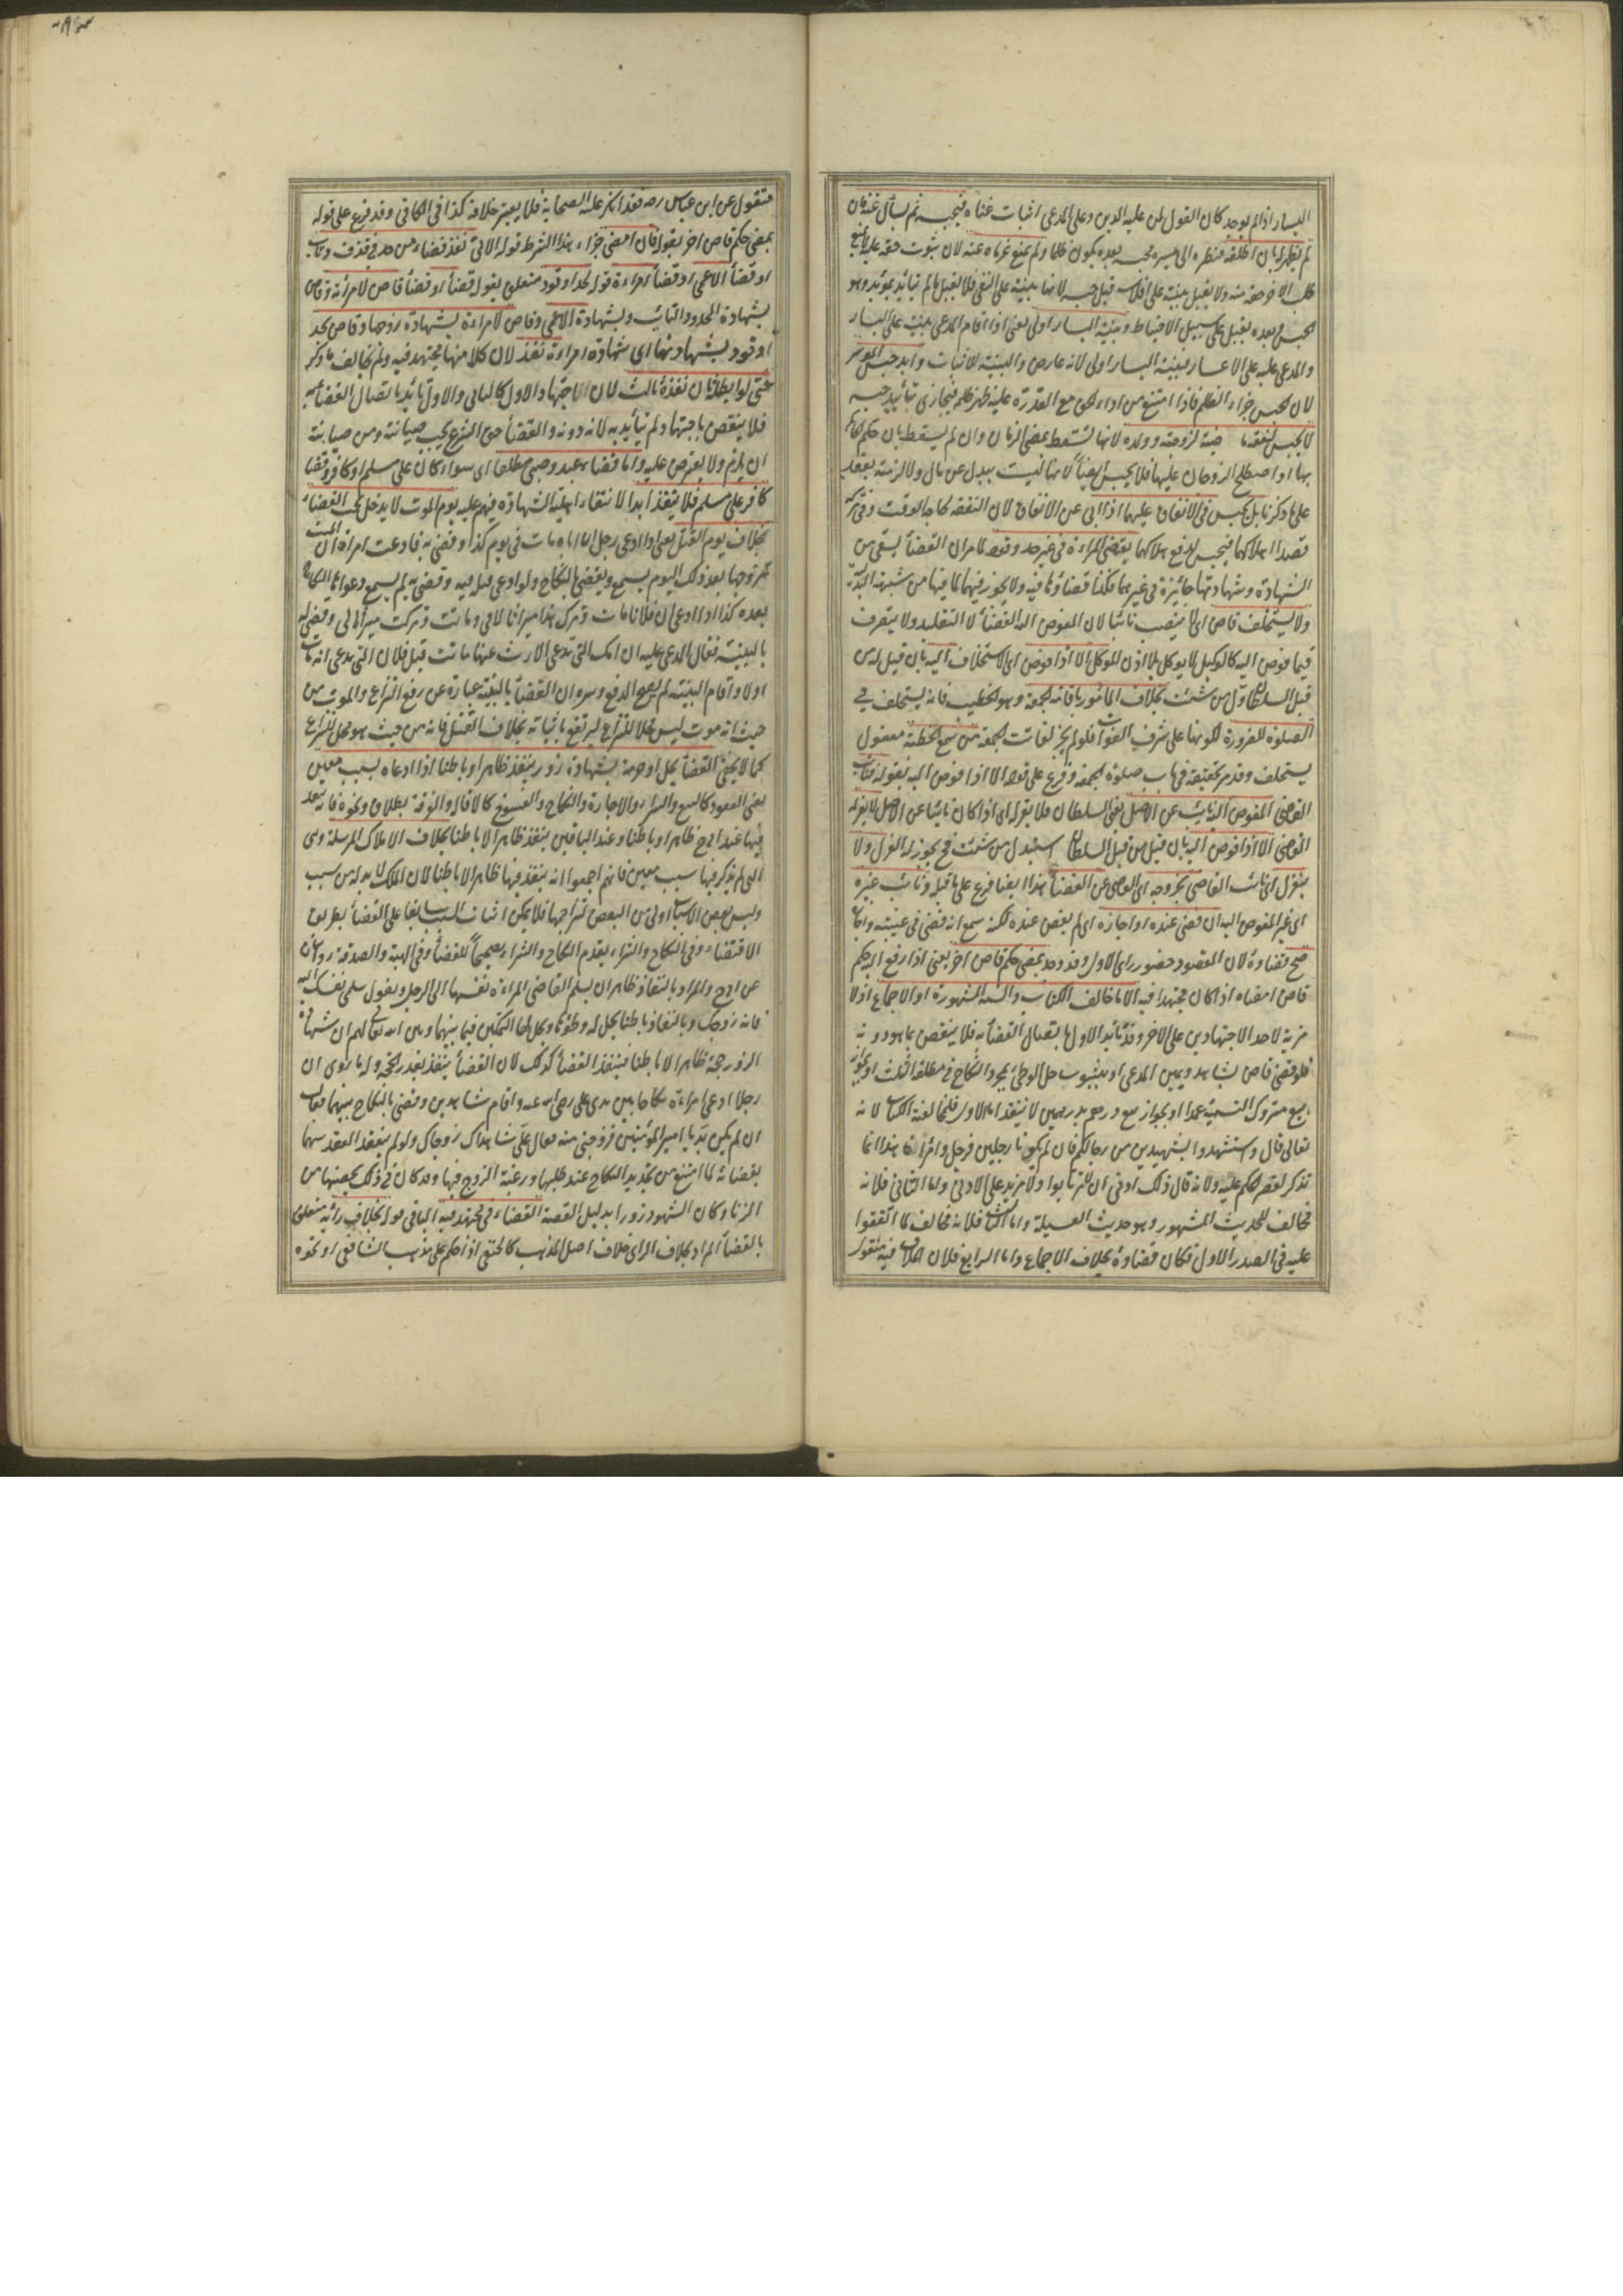 اليسار اذا لم يوجد كان القول لمن عليه الدين وعلى المدعى اثبات غناه فيحبسه ثم يسأل عنه فان
لم يظهر له مال اطلقه فنظره الى ميسره فحبسه بعده يكون ظلما ولم يمنع غرماءه عنه لان ثبوت حقه عليه لا يمنع
طلب الاخر حقه منه ولا تقبل بينة على افلاسه قبل حبسه لانها بينة على النفى فلا تقبل ما لم تتأيد بمؤيد وهو
الحبس وبعده يقبل على سبيل الاحتياط وبينة اليسار اولى يعنى اذا اقام المدعى بينة على اليسار
والمدعى عليه على الاعسار فبينة اليسار اولى لانه عارض والبينة للاثبات وابد حبس الموسر
لان الحبس جزاء الظلم فاذا امتنع من اداء الحق مع القدرة عليه ظهر ظلمه فيجازى بتأبيد حبسه
لا يحبس لنفقة ماضية لزوجته وولده لانها تسقط بمضى الزمان وان لم يسقط بان حكم الحاكم
بها او اصطلح الزوجان عليها فلا يحبس ايضاً لانها ليست ببدل عن مال ولا لزمته بعقد
على ما ذكرنا بل يحبس فى الانفاق عليهما اذا ابى عن الانفاق لان النفقة لحاجة الوقت وفى تركه
قصدا اهلاكهما فيحبس لدفع هلاكهما يقضى المراءة فى غير حد وقود لما مر ان القضاء يستقى من
الشهادة وشهادتها جائزة فى غيرهما فكذا قضاؤها فيه ولا يجوز فيهما لما فيها من شبهة البدلية
ولا يستخلف قاض اى لا ينصب نائبا لان المفوض اليه القضاء لا التقليد ولا يتصرف
فيما فوض اليه كالوكيل لا يوكل بلا اذن الموكل الا اذا فوض اى الاستخلاف اليه بان قيل له من
قبل السلطان ول من شئت بخلاف المأمور باقامة الجمعة وهو الخطيب فانه يستخلف فى
الصلوة للضرورة لكونها على شرف الفوات فلو لم يجز لفاتت الجمعة من سمع الخطبة مفعول
يستخلف وقد مر تحقيقه فى باب صلوة الجمعة وفرع على قوله الا اذا فوض اليه بقوله فنائب
القاضى المفوض اليه نائب عن الاصل يعنى السلطان فلا يعزله اى اذا كان نائبا عن الاصل لا يعزله
القاضى الا اذا فوض اليه بان قيل من قبل السلطان استبدل من شئت فح يجوز له العزل ولا
ينعزل اى نائب القاضى بخروجه اى القاضى عن القضاء هذا ايضا فرع على ما قبله ونائب غيره
اى غير المفوض اليه ان قضى عنده او اجازه اى لم يقض عنده لكنه سمع انه قضى فى غيبته واجاز
صح قضاؤه لان المقصود حضور راى الاول وقد وجد يمضى حكم قاض اخر يعنى اذا رفع اليه حكم
قاض امضاه اذا كان مجتهدا فيه الا ما خالف الكتاب والسنة المشهورة او الاجماع اذ لا
مزية لاحد الاجتهادين على الاخر وقد تأيد الاول باتصال القضاء به فلا ينقض بما هو دونه
فلو قضى قاض بشاهد ويمين المدعى او بثبوت حل الوطئ بمجرد النكاح فى مطلقة الثلث او بجواز
بيع متروك التسمية عمدا او بجواز بيع درهم بدرهمين لا ينفذ اما الاول فلمخالفة الكتاب لانه
تعالى قال واستشهدوا شهيدين من رجالكم فان لم يكونا رجلين فرجل وامرأتان هذا انما
تذكر لقصر الحكم عليه ولانه قال ذلك ادنى ان لا ترتابوا ولا مزيد على الادنى واما الثانى فلانه
مخالف للحديث المشهور وهو حديث العسيلة واما الثالث فلانه مخالف لما اتفقوا
عليه فى الصدر الاول فكان قضاؤه بخلاف الاجماع واما الرابع فلان الخلاف فيه منقول
منقول عن ابن عباس رضه فقد انكر عليه الصحابة فلا يعتبر خلافه كذا فى الكافى وقد فرع على قوله
يمضى حكم قاض اخر بقوله فان امضى جزاء هذا الشرط قوله الاتى نفذ قضاء من حد فى قذف وتاب
او قضاء الاعمى او قضاء امراءة قوله لحد او قود متعلق بقوله قضاء او قضاء قاض لامرأته وقاض
بشهادة المحدود التائب وبشهادة الاعمى وقاض لامراءة بشهادة زوجها وقاض لحد
او قود بشهادتها اى شهادة امراءة نفذ لان كلا منها مجتهد فيه ولم يخالف ما ذكر
حتى لو ابطله ثان نفذه ثالث لان الاجتهاد الاول كالثانى والاول تأيد باتصال القضاء به
فلا ينقض باجتهاد لم يتأيد به لانه دونه والقضاء حق الشرع يجب صيانته ومن صيانته
ان يلزم ولا يعترض عليه واما قضاء عبد وصبى مطلقا اى سواء كان على مسلم او كافر وقضاء
كافر على مسلم فلا ينفذ ابدا لانتفاء اهلية الشهادة فيهم عليه يوم الموت لا يدخل تحت القضاء
بخلاف يوم القتل يعنى اذا ادعى رجل ان اباه مات فى يوم كذا وقضى به فادعت امراة ان الميت
تزوجها بعد ذلك اليوم يسمع ويقضى بالنكاح ولو ادعى قتله فيه وقضى به لم يسمع دعواها النكاح
بعده كذا اذا ادعى ان فلانا مات وترك هذا ميراثا لامى وماتت وتركت ميراثا لى وقضى له
بالبينة فقال المدعى عليه ان امك التى تدعى الارث عنها ماتت قبل فلان التى تدعى انه مات
اولا واقام البينة لم يصح الدفع وسره ان القضاء بالبينة عبارة عن رفع النزاع والموت من
حيث انه موت ليس محلا للنزاع ليرتفع باثباته بخلاف القتل فانه من حيث هو محل للنزاع
كما لا يخفى القضاء بحل او حرمة بشهادة زور ينفذ ظاهرا وباطنا اذا ادعاه بسبب معين
يعنى العقود كالبيع والشراء والاجارة والنكاح والفسوخ كالاقالة والفرقة بطلاق ونحوه فانه ينفذ
فيها عند ابى ح ظاهرا وباطنا وعند الباقين ينفذ ظاهرا لا باطنا بخلاف الاملاك المرسلة وهى
التى لم يذكر فيها سبب معين فانهم اجمعوا انه ينفذ فيها ظاهرا لا باطنا لان الملك لا بد له من سبب
وليس بعض الاسباب اولى من البعض لتزاحمها فلا يمكن اثبات السبب سابقا على القضاء بطريق
الاقتضاء وفى النكاح والشراء يقدم النكاح والشراء تصحيحاً للقضاء وفى الهبة والصدقة روايتان
عن ابى ح والمراد بالنفاذ ظاهرا ان يسلم القاضى المراءة نفسها الى الرجل ويقول سلمى نفسك اليه
فانه زوجك وبالنفاذ باطنا يحل له وطؤها ويحل لها التمكين فيما بينهما وبين الله تعالى لهم ان شهادة
الزور حجة ظاهرا لا باطنا فينفذ القضاء كذلك لان القضاء ينفذ بقدر الحجة وله ما روى ان
رجلا ادعى امراءة نكاحا بين يدى على رضى الله عنه واقام شاهدين وقضى بالنكاح بينهما فقالت
ان لم يكن بد يا امير المؤمنين فزوجنى منه فقال على شاهداك زوجاك ولو لم ينعقد العقد بينهما
بقضائه لما امتنع من تجديد النكاح عند طلبها ورغبة الزوج فيها وقد كان فى ذلك تحصينها من
الزنا وكان الشهود زورا بدليل القصة القضاء فى مجتهد فيه الباقى قوله بخلاف رائه متعلق
بالقضاء المراد بخلاف الراى خلاف اصل المذهب كالحنفى اذا حكم على مذهب الشافعى او نحوه